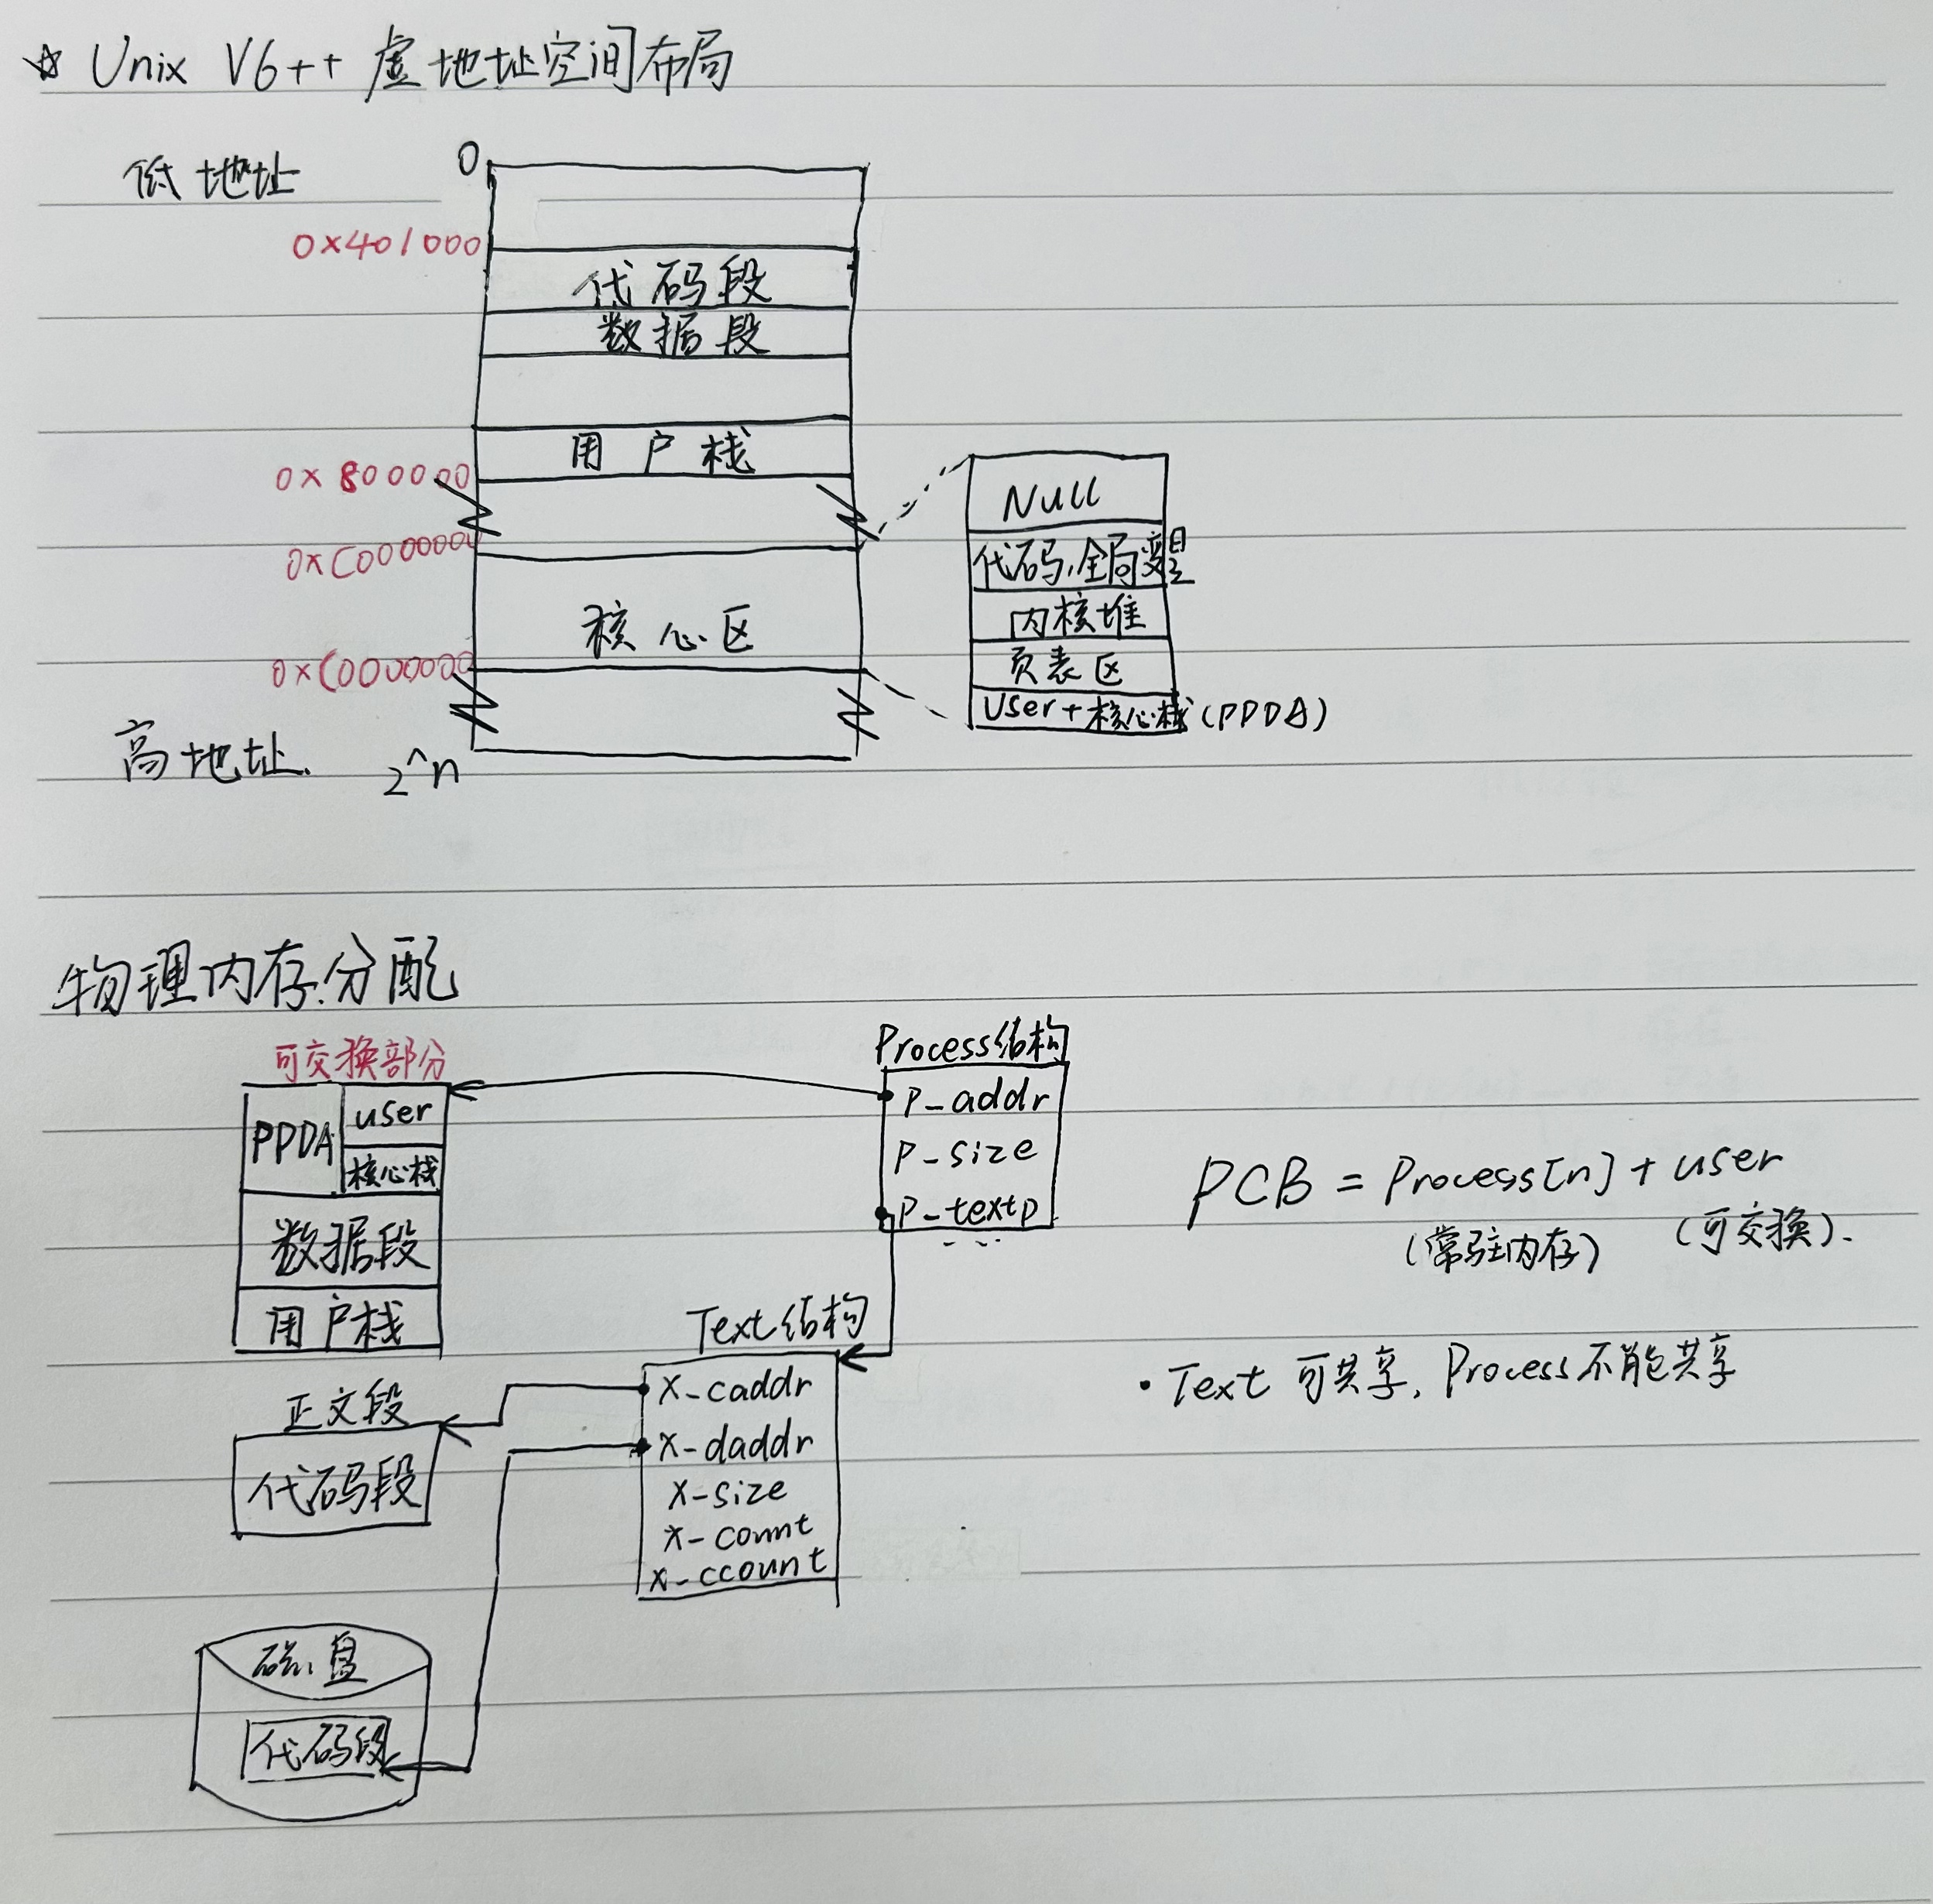 ☆ Unix V6++ 虚地址空间布局
低地址
0
0x401000
代码段
数据段
用户栈
0x800000
0xC0000000
核心区
0xC0000000
高地址.
2^n
Null
代码,全局变量
内核堆
页表区
User+核心栈(PPDA)
物理内存分配
可交换部分
PPDA
user
核心栈
数据段
用户栈
Process结构
P-addr
P-size
P-textp
...
PCB = Process[n] + user
(常驻内存) (可交换).
Text结构
x-caddr
x-daddr
x-size
x-count
x-ccount
• Text 可共享, Process不能共享
正文段
代码段
磁盘
代码段